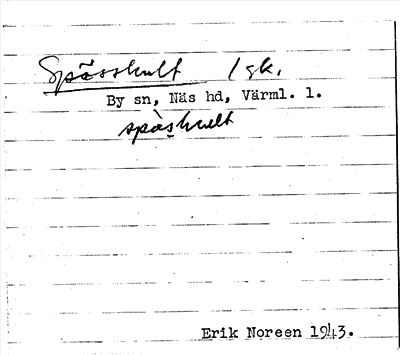 Spässhult 1 gk.
By sn, Näs hd, Värml. l.
spàs̬hult
Erik Noreen 1943.